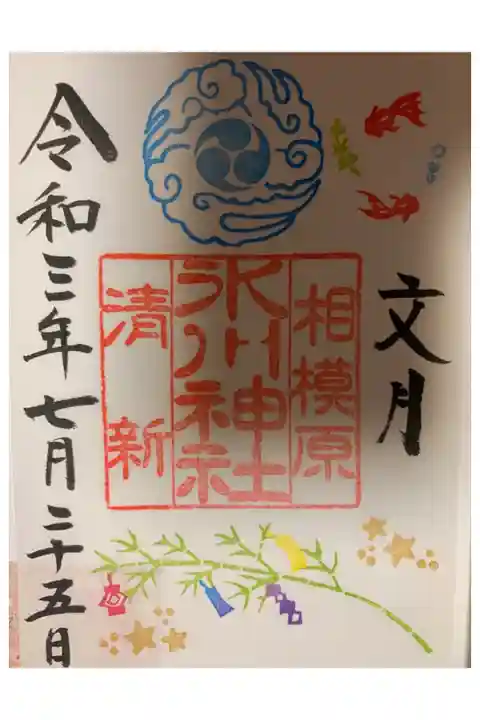 文月
相模原
氷川神社
清新
令和三年七月二十五日